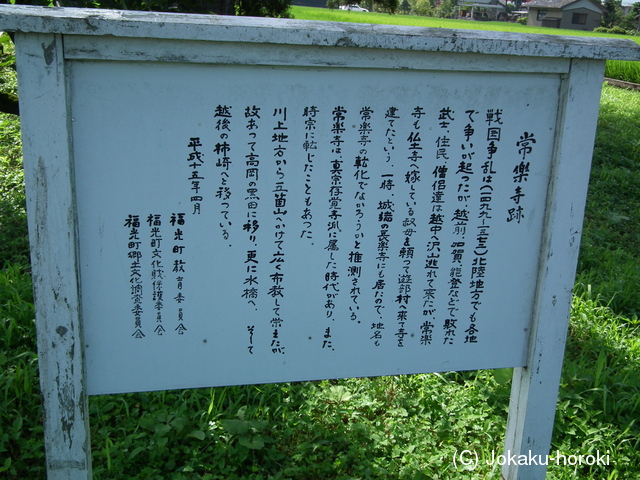 常樂寺跡
戦国争乱は(一四九九〜一五七三)北陸地方でも各地
で争いが起ったが、越前、加賀、能登などで敗れた
武士、住民、僧侶達は越中へ沢山逃れて来たが、常楽
寺も仏土寺へ嫁している叔母を頼って遊部村へ来て寺を
建てたという。一時、城端の是楽寺にも居たので、地名も
常楽寺の転化でなかろうかと推測されている。
常楽寺は、真宗存覚寺派に属した時代があり、また、
時宗に転じたこともあった。
川上地方から五箇山へかけて広く布教して栄えたが、
故あって高岡の黒田に移り、更に水橋、そして
越後の柿崎へと移っている。
平成十五年四月
福光町教育委員会
福光町文化財保護委員会
福光町郷土文化調査委員会
(C) Jokaku-horoki